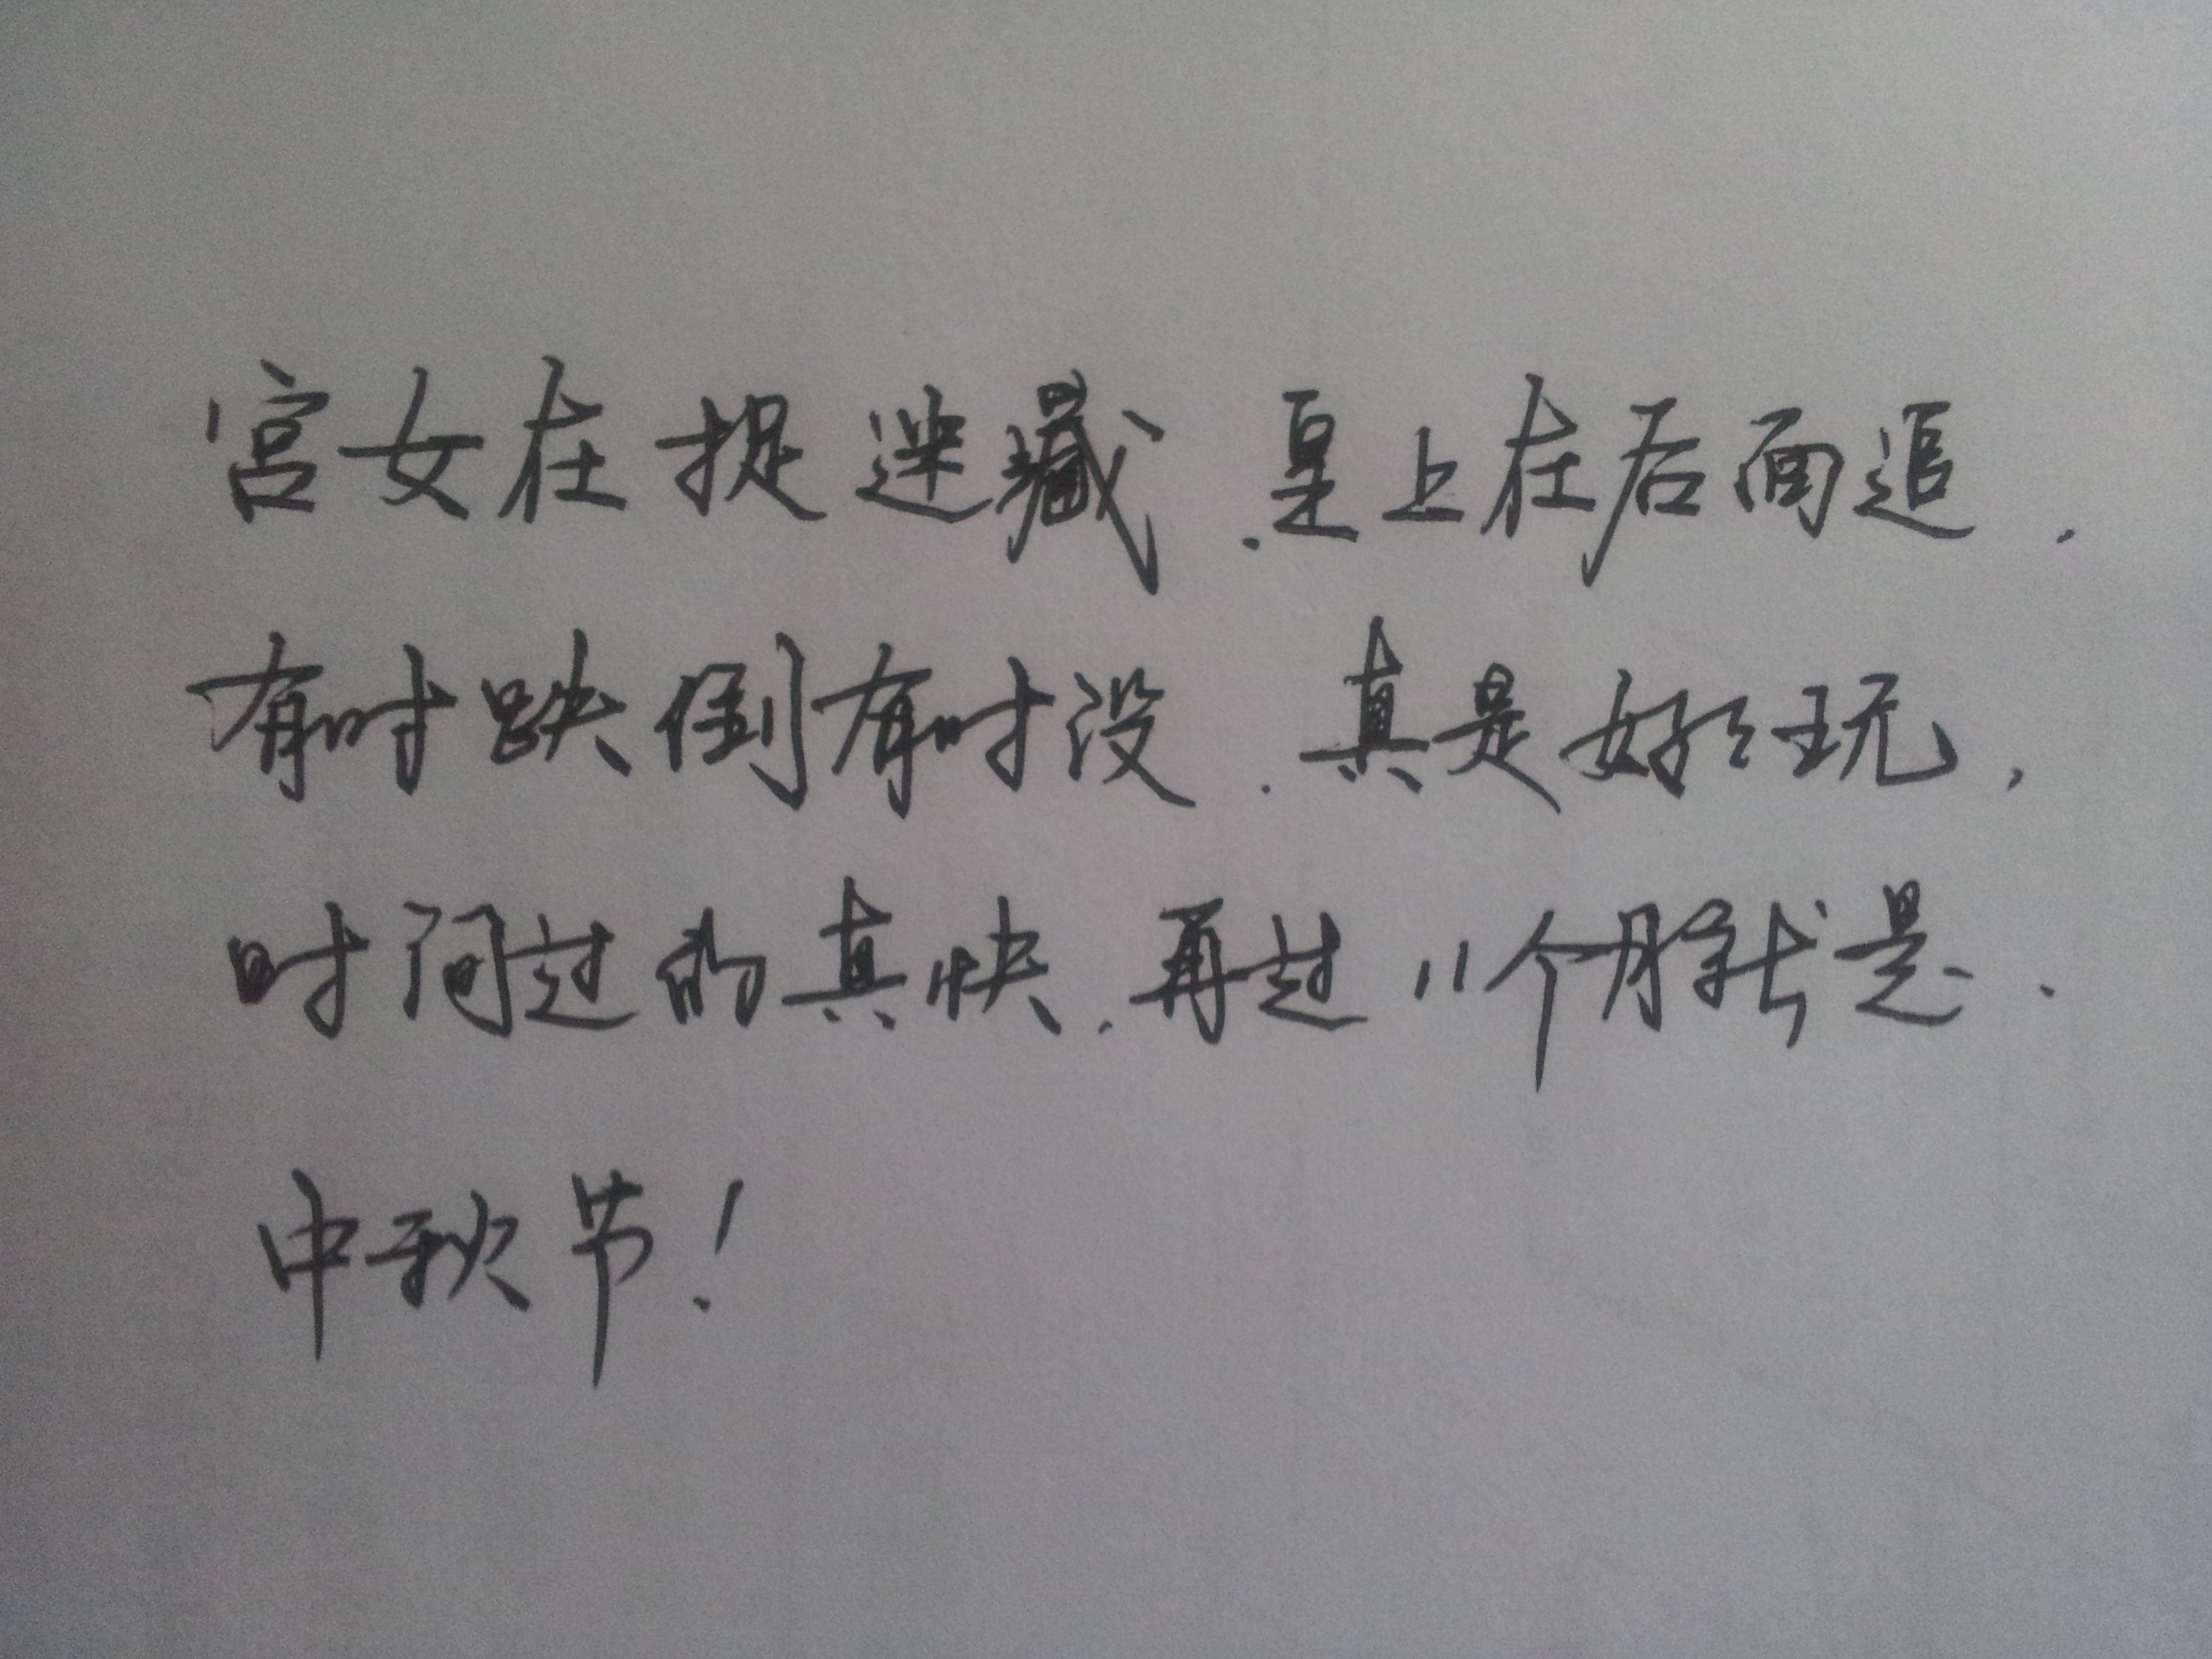 宫女在捉迷藏.皇上在后面追.
有时跌倒有时没.真是好好玩,
时间过的真快.再过11个月就是.
中秋节!